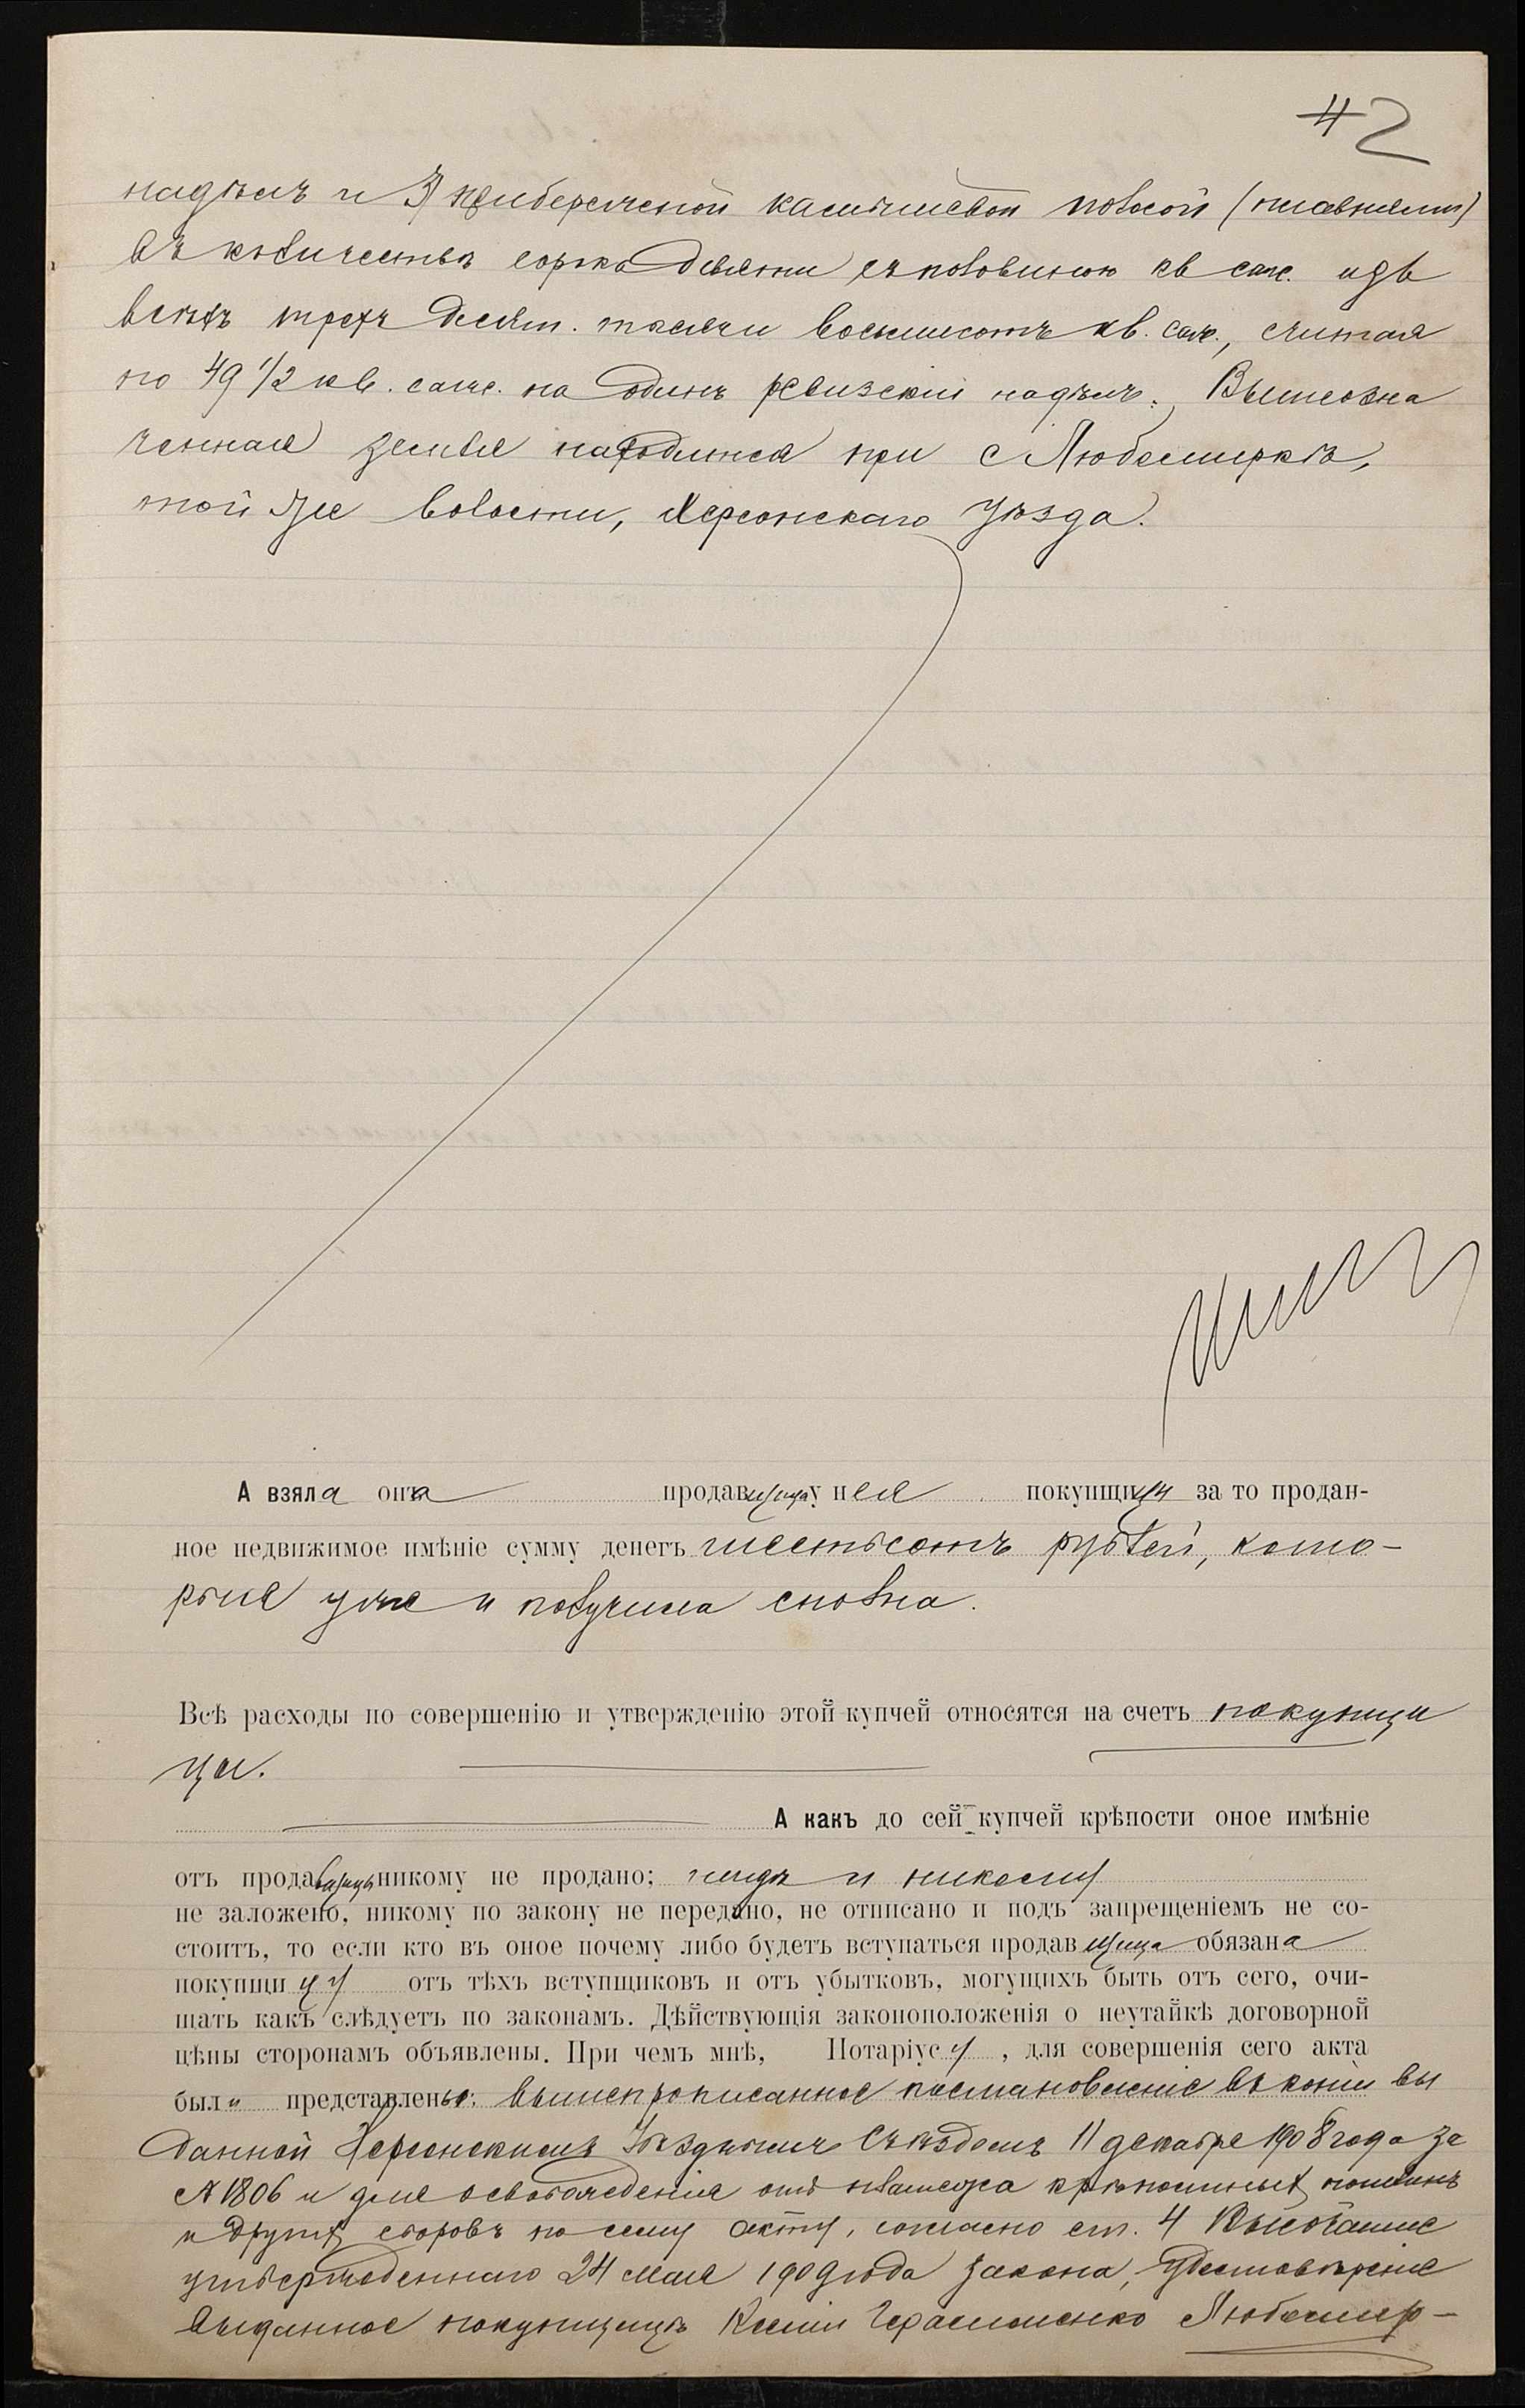 42
надѣлъ и 3) прибережной камышевой полосой (плавнями)
въ количествѣ сорока девяти съ половиною кв саж. изъ
всѣхъ трехъ десят. тысячи восьмисотъ кв. саж., считая
по 49 1/2 кв. саж. на одинъ ревизскій надѣлъ. Вышеозна
ченная земля находится при с Любомиркѣ,
той же волости, Херсонскаго уѣзда.
А взяла она продавщица у нея покупщицы за то продан-
ное недвижимое имѣніе сумму денегъ шестьсотъ рублей, кото-
рыя уже и получила сполна.
Всѣ расходы по совершенію и утвержденію этой купчей относятся на счетъ покупщи
цы.
А какъ до сей купчей крѣпости оное имѣніе
отъ продавщицы никому не продано; нигдѣ и никому
не заложено, никому по закону не передано, не отписано и подъ запрещеніемъ не со-
стоитъ, то если кто въ оное почему либо будетъ вступаться продавщица обязана
покупщицу отъ тѣхъ вступщиковъ и отъ убытковъ, могущихъ быть отъ сего, очи-
щать какъ слѣдуетъ по законамъ. Дѣйствующія законоположенія о неутайкѣ договорной
цѣны сторонамъ объявлены. При чемъ мнѣ, Нотаріусу, для совершенія сего акта
были представлены: вышепрописанное постановленіе въ копіи вы
данной Херсонскимъ Уѣзднымъ Съѣздомъ 11 декабря 1908 года за
№ 1806 и для освобожденія отъ платежа крѣпостныхъ пошлинъ
и другихъ сборовъ по сему акту, согласно ст. 4 Высочайше
утвержденнаго 24 Мая 1909 года закона, удостовѣреніе
выданное покупщицѣ Ксеніи Герасименко Любомир-